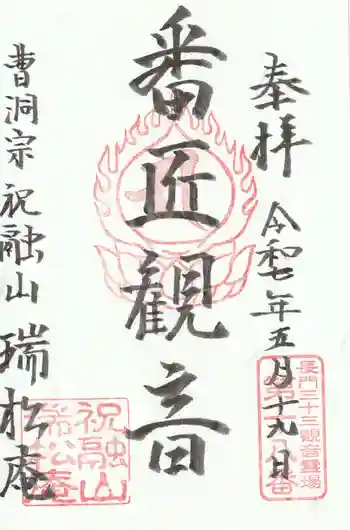 奉拝
令和七年五月十九日
長門三十三観音霊場
番匠観音
曹洞宗祝融山瑞松庵
祝融山
瑞松庵